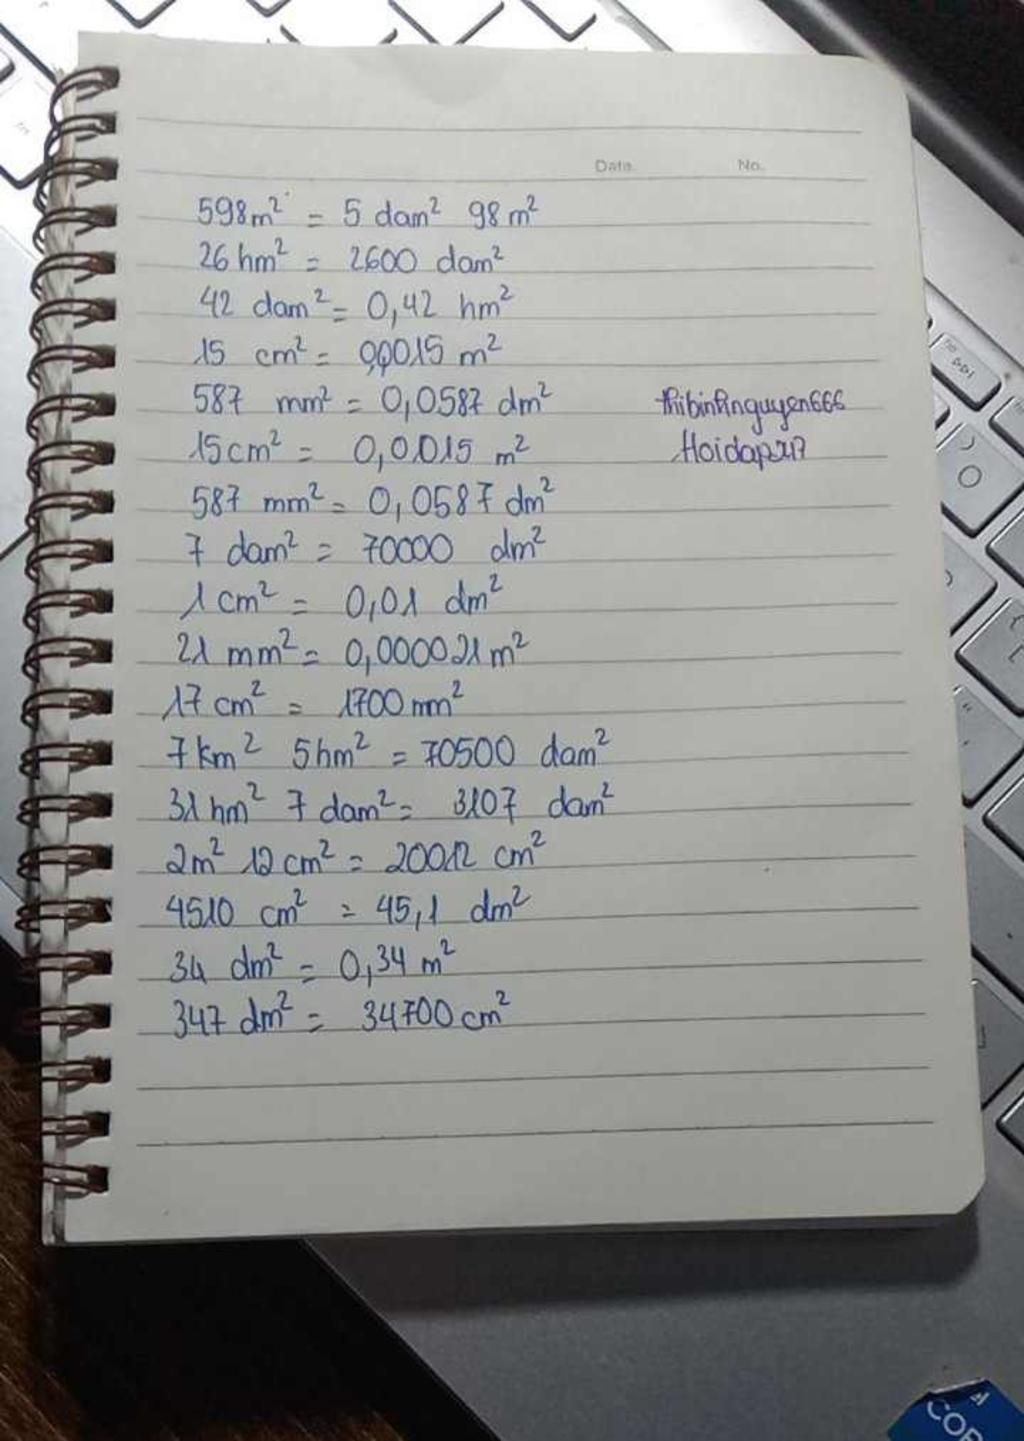 Date. No.
598m² = 5 dam² 98 m²
26 hm² = 2600 dam²
42 dam² = 0,42 hm²
15 cm² = 0,0015 m²
587 mm² = 0,0587 dm²
thibinhnguyen666
15cm² = 0,0015 m²
Hoidap247
587 mm² = 0,0587 dm²
7 dam² = 70000 dm²
1 cm² = 0,01 dm²
21 mm² = 0,000021 m²
17 cm² = 1700 mm²
7 km² 5 hm² = 70500 dam²
31 hm² 7 dam² = 3107 dam²
2m² 12 cm² = 20012 cm²
4510 cm² = 45,1 dm²
34 dm² = 0,34 m²
347 dm² = 34700 cm²